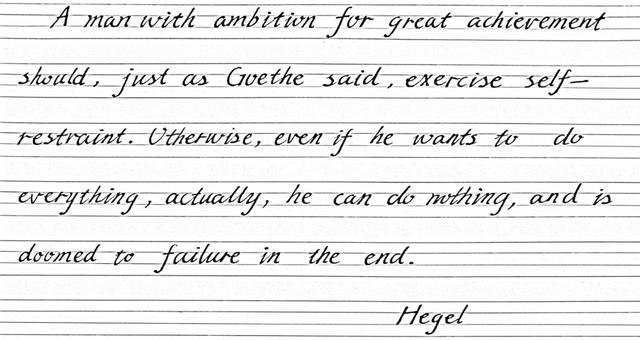 A man with ambition for great achievement
should, just as Goethe said, exercise self-
restraint. Otherwise, even if he wants to do
everything, actually, he can do nothing, and is
doomed to failure in the end.
Hegel